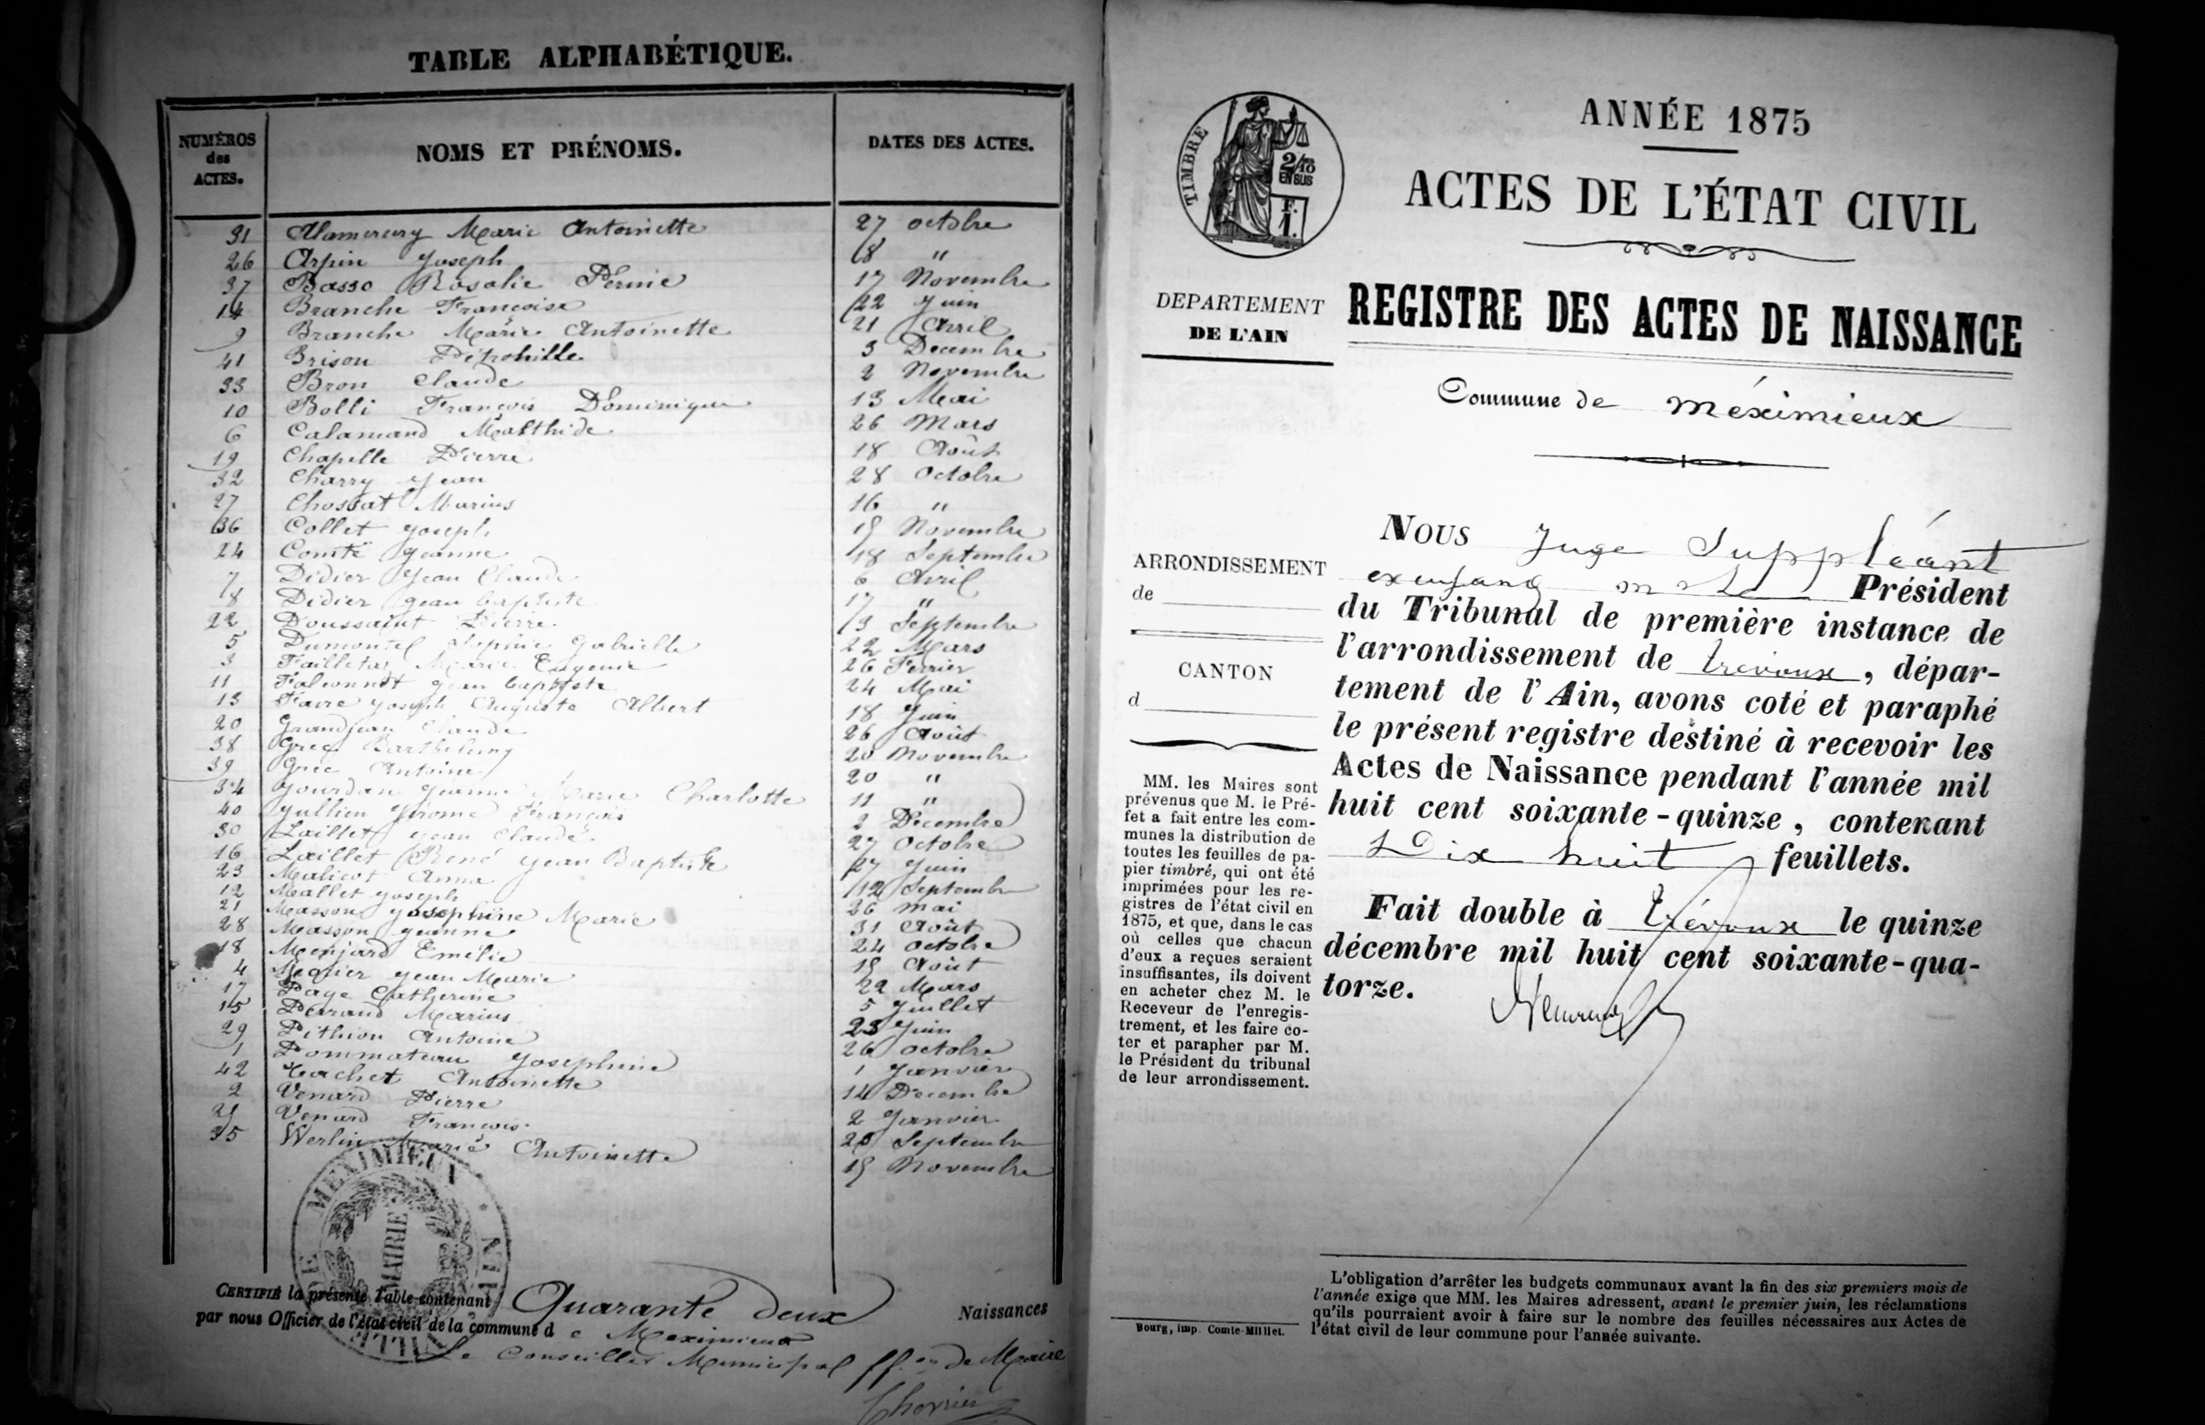 TABLE ALPHABÉTIQUE.
NUMÉROS des ACTES. NOMS ET PRÉNOMS. DATES DES ACTES.
31 Alamercery Marie Antoinette 27 octobre
26 Arpin Joseph 8 "
37 Basso Rosalie Pernie 17 Novembre
14 Branche Françoise 22 Juin
9 Branche Marie Antoinette 21 Avril
41 Brison Pétronille 3 Decembre
33 Bron Claude 2 Novembre
10 Bolli François Dominique 13 Mai
6 Calamand Matthide 26 Mars
19 Chapelle Pierre 18 Août
32 Charry Jean 28 octobre
27 Chossat Marius 16 "
36 Collet Joseph 15 Novembre
24 Comte Jeanne 18 Septembre
7 Didier Jean Claude 6 Avril
8 Didier Jean baptiste 17 "
22 Doussaint Pierre 3 Septembre
5 Dumontel Gabrielle 22 Mars
3 Failleta Marie Eugenie 26 Fevrier
11 Falconnet Jean baptiste 24 Mai
13 Favre Joseph Auguste Albert 18 Juin
20 Grandjean Claude 26 Août
38 Gree Barthelemy 20 Novembre
39 Gree Antoine 20 "
34 Jourdan Jeanne Marie Charlotte 11 "
40 Jullien Jérome François 2 Decembre
30 Laillet Jean Claude 27 octobre
16 Laillet René Jean Baptiste 27 Juin
23 Malicot Anna 12 Septembre
12 Mallet Joseph 26 mai
21 Masson Josephine Marie 31 Août
28 Masson Jeanne 24 octobre
18 Menjard Emélie 15 Août
4 Jean Marie 22 Mars
17 Page Catherine 5 Juillet
15 Perraud Marius 23 Juin
29 Pithion Antoine 26 octobre
1 Pommateau Josephine 1 Janvier
42 Antoinette 14 Decembre
2 Venard Pierre 2 Janvier
25 Venard François 20 Septembre
35 Werlin Marie Antoinette 15 Novembre
MAIRIE DE MEXIMIEUX
CERTIFIÉ la présente Table contenant Quarante deux Naissances
par nous Officier de l'état civil de la commune de Meximieux
Le Conseiller Municipal ff.on de Maire
TIMBRE
2/10 EN SUS
F. 1.
ANNÉE 1875
ACTES DE L'ÉTAT CIVIL
DEPARTEMENT
DE L'AIN
REGISTRE DES ACTES DE NAISSANCE
Commune de méximieux
ARRONDISSEMENT
de
CANTON
d
NOUS Juge Suppléant
Président
du Tribunal de première instance de
l'arrondissement de trévoux, dépar-
tement de l'Ain, avons coté et paraphé
le présent registre destiné à recevoir les
Actes de Naissance pendant l'année mil
huit cent soixante-quinze, contenant
Dix huit feuillets.
Fait double à trévoux le quinze
décembre mil huit cent soixante-qua-
torze.
MM. les Maires sont
prévenus que M. le Pré-
fet a fait entre les com-
munes la distribution de
toutes les feuilles de pa-
pier timbré, qui ont été
imprimées pour les re-
gistres de l'état civil en
1875, et que, dans le cas
où celles que chacun
d'eux a reçues seraient
insuffisantes, ils doivent
en acheter chez M. le
Receveur de l'enregis-
trement, et les faire co-
ter et parapher par M.
le Président du tribunal
de leur arrondissement.
L'obligation d'arrêter les budgets communaux avant la fin des six premiers mois de
l'année exige que MM. les Maires adressent, avant le premier juin, les réclamations
qu'ils pourraient avoir à faire sur le nombre des feuilles nécessaires aux Actes de
l'état civil de leur commune pour l'année suivante.
Bourg, imp. Comte-Milliet.